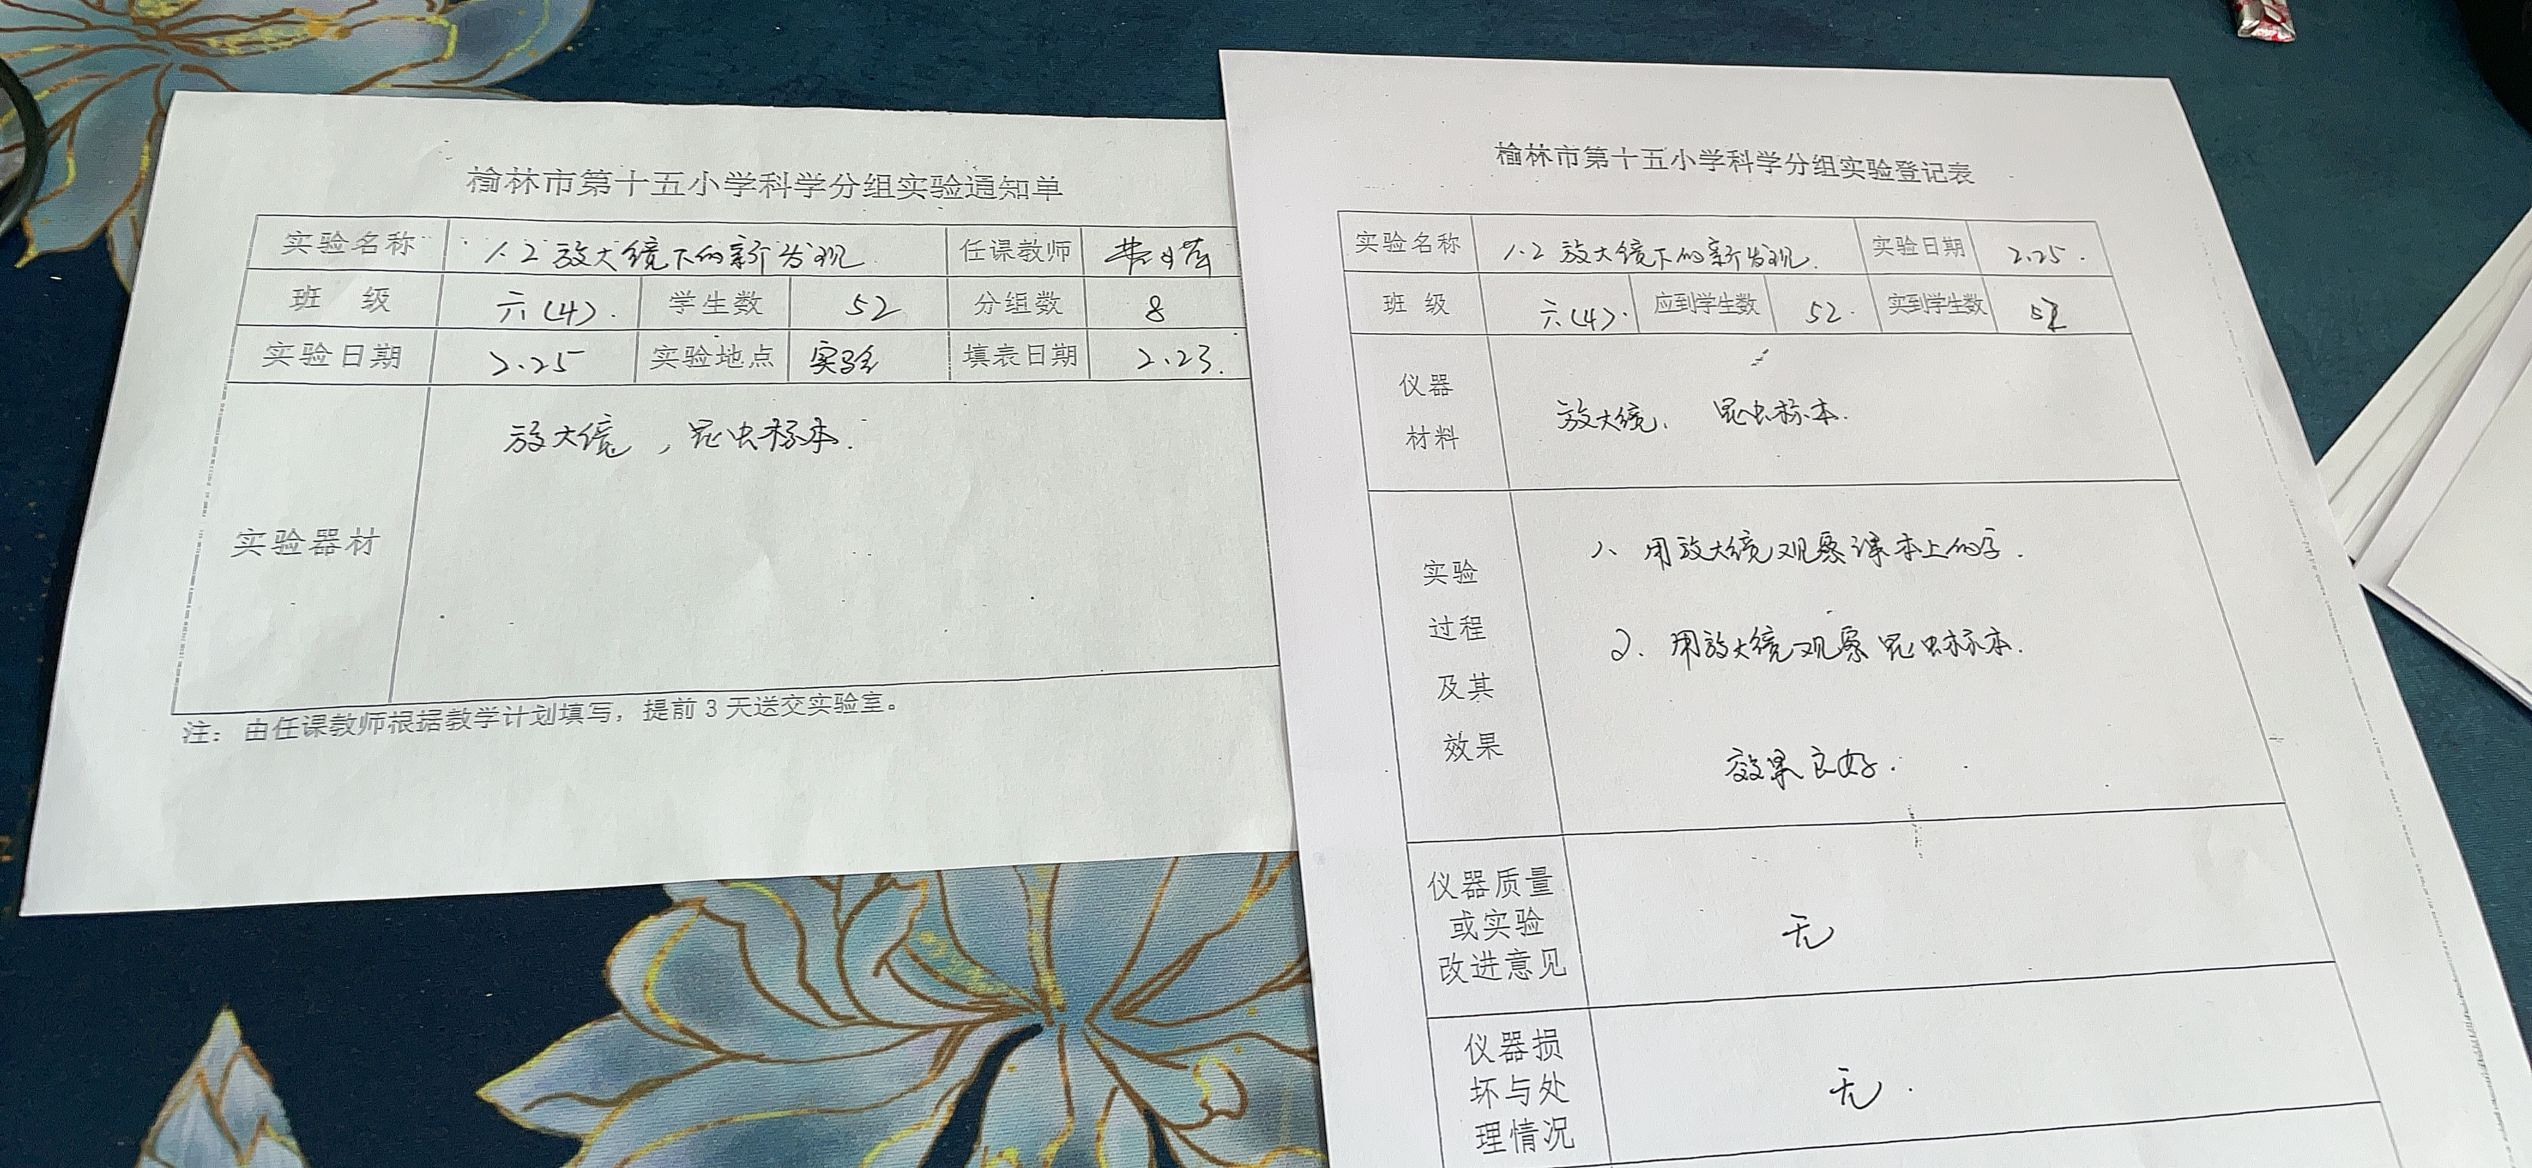 榆林市第十五小学科学分组实验通知单
实验名称 1.2 放大镜下的新发现 任课教师
班 级 六(4). 学生数 52 分组数 8
实验日期 2.25 实验地点 实验 填表日期 2.23.
实验器材 放大镜, 昆虫标本.
注：由任课教师根据教学计划填写，提前3天送交实验室。
榆林市第十五小学科学分组实验登记表
实验名称 1.2 放大镜下的新发现. 实验日期 2.25.
班 级 六(4). 应到学生数 52. 实到学生数 52
仪器
材料
放大镜、 昆虫标本.
实验
过程
及其
效果
1、用放大镜观察课本上的字.
2、用放大镜观察昆虫标本.
效果良好.
仪器质量
或实验
改进意见
无
仪器损
坏与处
理情况
无.